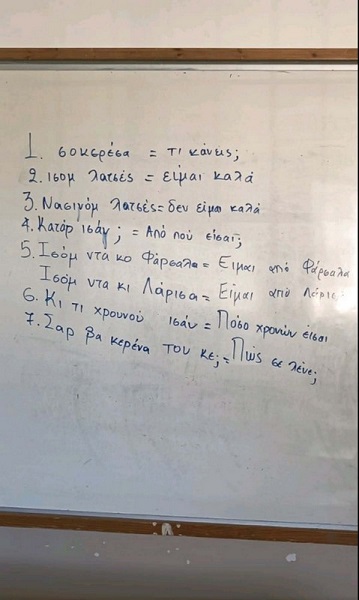 1. σοκερέσα = τι κάνεις;
2. ισομ λατσές = είμαι καλά
3. Νασιγόμ λατσές = δεν είμαι καλά
4. Κατάρ ισάγ; = Από πού είσαι;
5. Ισόμ ντα κο Φάρσαλα = Ειμαι από Φάρσαλα
Ισόμ ντα κι Λάρισα = Είμαι από Λάρισα
6. Κι τι χρουνού ισάν = Πόσο χρονών είσαι
7. Σαρ βα κερένα του κε; = Πώς σε λένε;